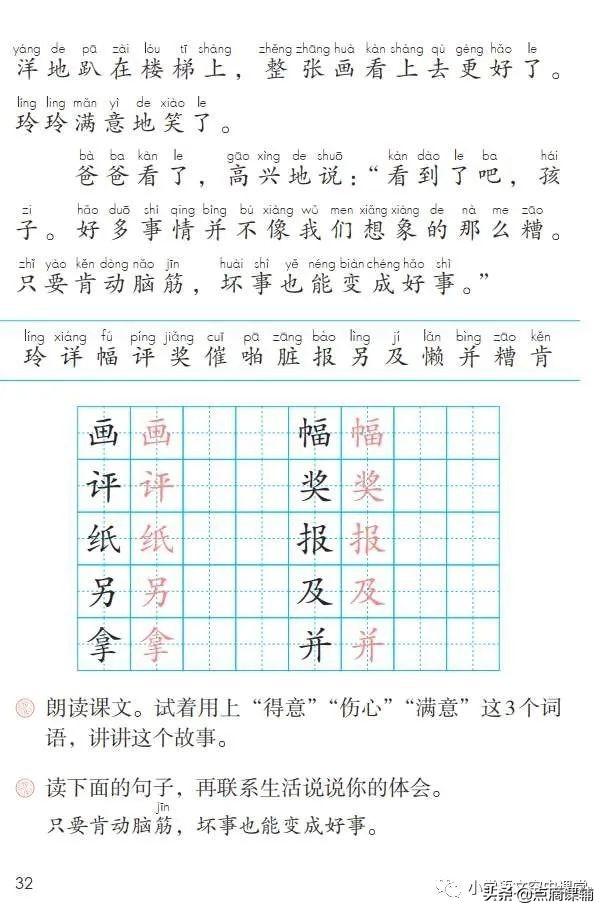 yáng de pā zài lóu tī shàng zhěng zhāng huà kàn shàng qù gèng hǎo le
洋地趴在楼梯上，整张画看上去更好了。
líng ling mǎn yì de xiào le
玲玲满意地笑了。
bà ba kàn le gāo xìng de shuō kàn dào le ba hái
爸爸看了，高兴地说：“看到了吧，孩
zi hǎo duō shì qing bìng bù xiàng wǒ men xiǎng xiàng de nà me zāo
子。好多事情并不像我们想象的那么糟。
zhǐ yào kěn dòng nǎo jīn huài shì yě néng biàn chéng hǎo shì
只要肯动脑筋，坏事也能变成好事。”
líng xiáng fú píng jiǎng cuī pā zāng bào lìng jí lǎn bìng zāo kěn
玲详幅评奖催啪脏报另及懒并糟肯
画 画 幅 幅
评 评 奖 奖
纸 纸 报 报
另 另 及 及
拿 拿 并 并
朗读课文。试着用上“得意”“伤心”“满意”这3个词
语，讲讲这个故事。
读下面的句子，再联系生活说说你的体会。
jīn
只要肯动脑筋，坏事也能变成好事。
32
小学语文空中课堂
头条@点滴课辅